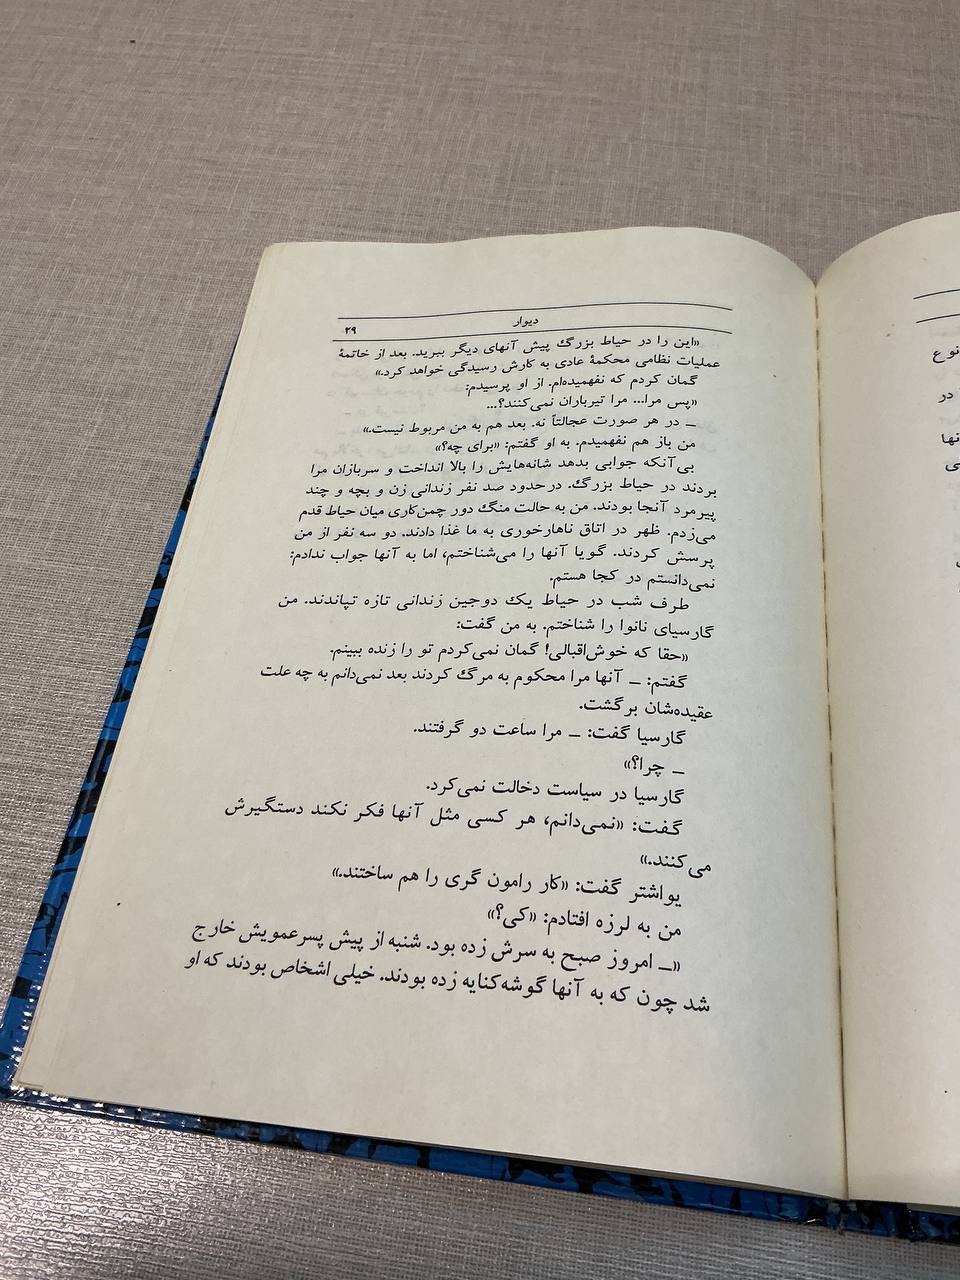 دیوار
۲۹
«این را در حیاط بزرگ پیش آنهای دیگر ببرید. بعد از خاتمهٔ
عملیات نظامی محکمهٔ عادی به کارش رسیدگی خواهد کرد.»
گمان کردم که نفهمیده‌ام. از او پرسیدم:
«پس مرا... مرا تیرباران نمی‌کنند؟...
ـ در هر صورت عجالتاً نه. بعد هم به من مربوط نیست.»
من باز هم نفهمیدم. به او گفتم: «برای چه؟»
بی‌آنکه جوابی بدهد شانه‌هایش را بالا انداخت و سربازان مرا
بردند در حیاط بزرگ. درحدود صد نفر زندانی زن و بچه و چند
پیرمرد آنجا بودند. من به حالت منگ دور چمن‌کاری میان حیاط قدم
می‌زدم. ظهر در اتاق ناهارخوری به ما غذا دادند. دو سه نفر از من
پرسش کردند. گویا آنها را می‌شناختم، اما به آنها جواب ندادم:
نمی‌دانستم در کجا هستم.
طرف شب در حیاط یک دوجین زندانی تازه تپاندند. من
گارسیای نانوا را شناختم. به من گفت:
«حقا که خوش‌اقبالی! گمان نمی‌کردم تو را زنده ببینم.
گفتم: ـ آنها مرا محکوم به مرگ کردند بعد نمی‌دانم به چه علت
عقیده‌شان برگشت.
گارسیا گفت: ـ مرا ساعت دو گرفتند.
ـ چرا؟»
گارسیا در سیاست دخالت نمی‌کرد.
گفت: «نمی‌دانم، هر کسی مثل آنها فکر نکند دستگیرش
می‌کنند.»
یواشتر گفت: «کار رامون گری را هم ساختند.»
من به لرزه افتادم: «کی؟»
«ـ امروز صبح به سرش زده بود. شنبه از پیش پسرعمویش خارج
شد چون که به آنها گوشه‌کنایه زده بودند. خیلی اشخاص بودند که او
نوع
در